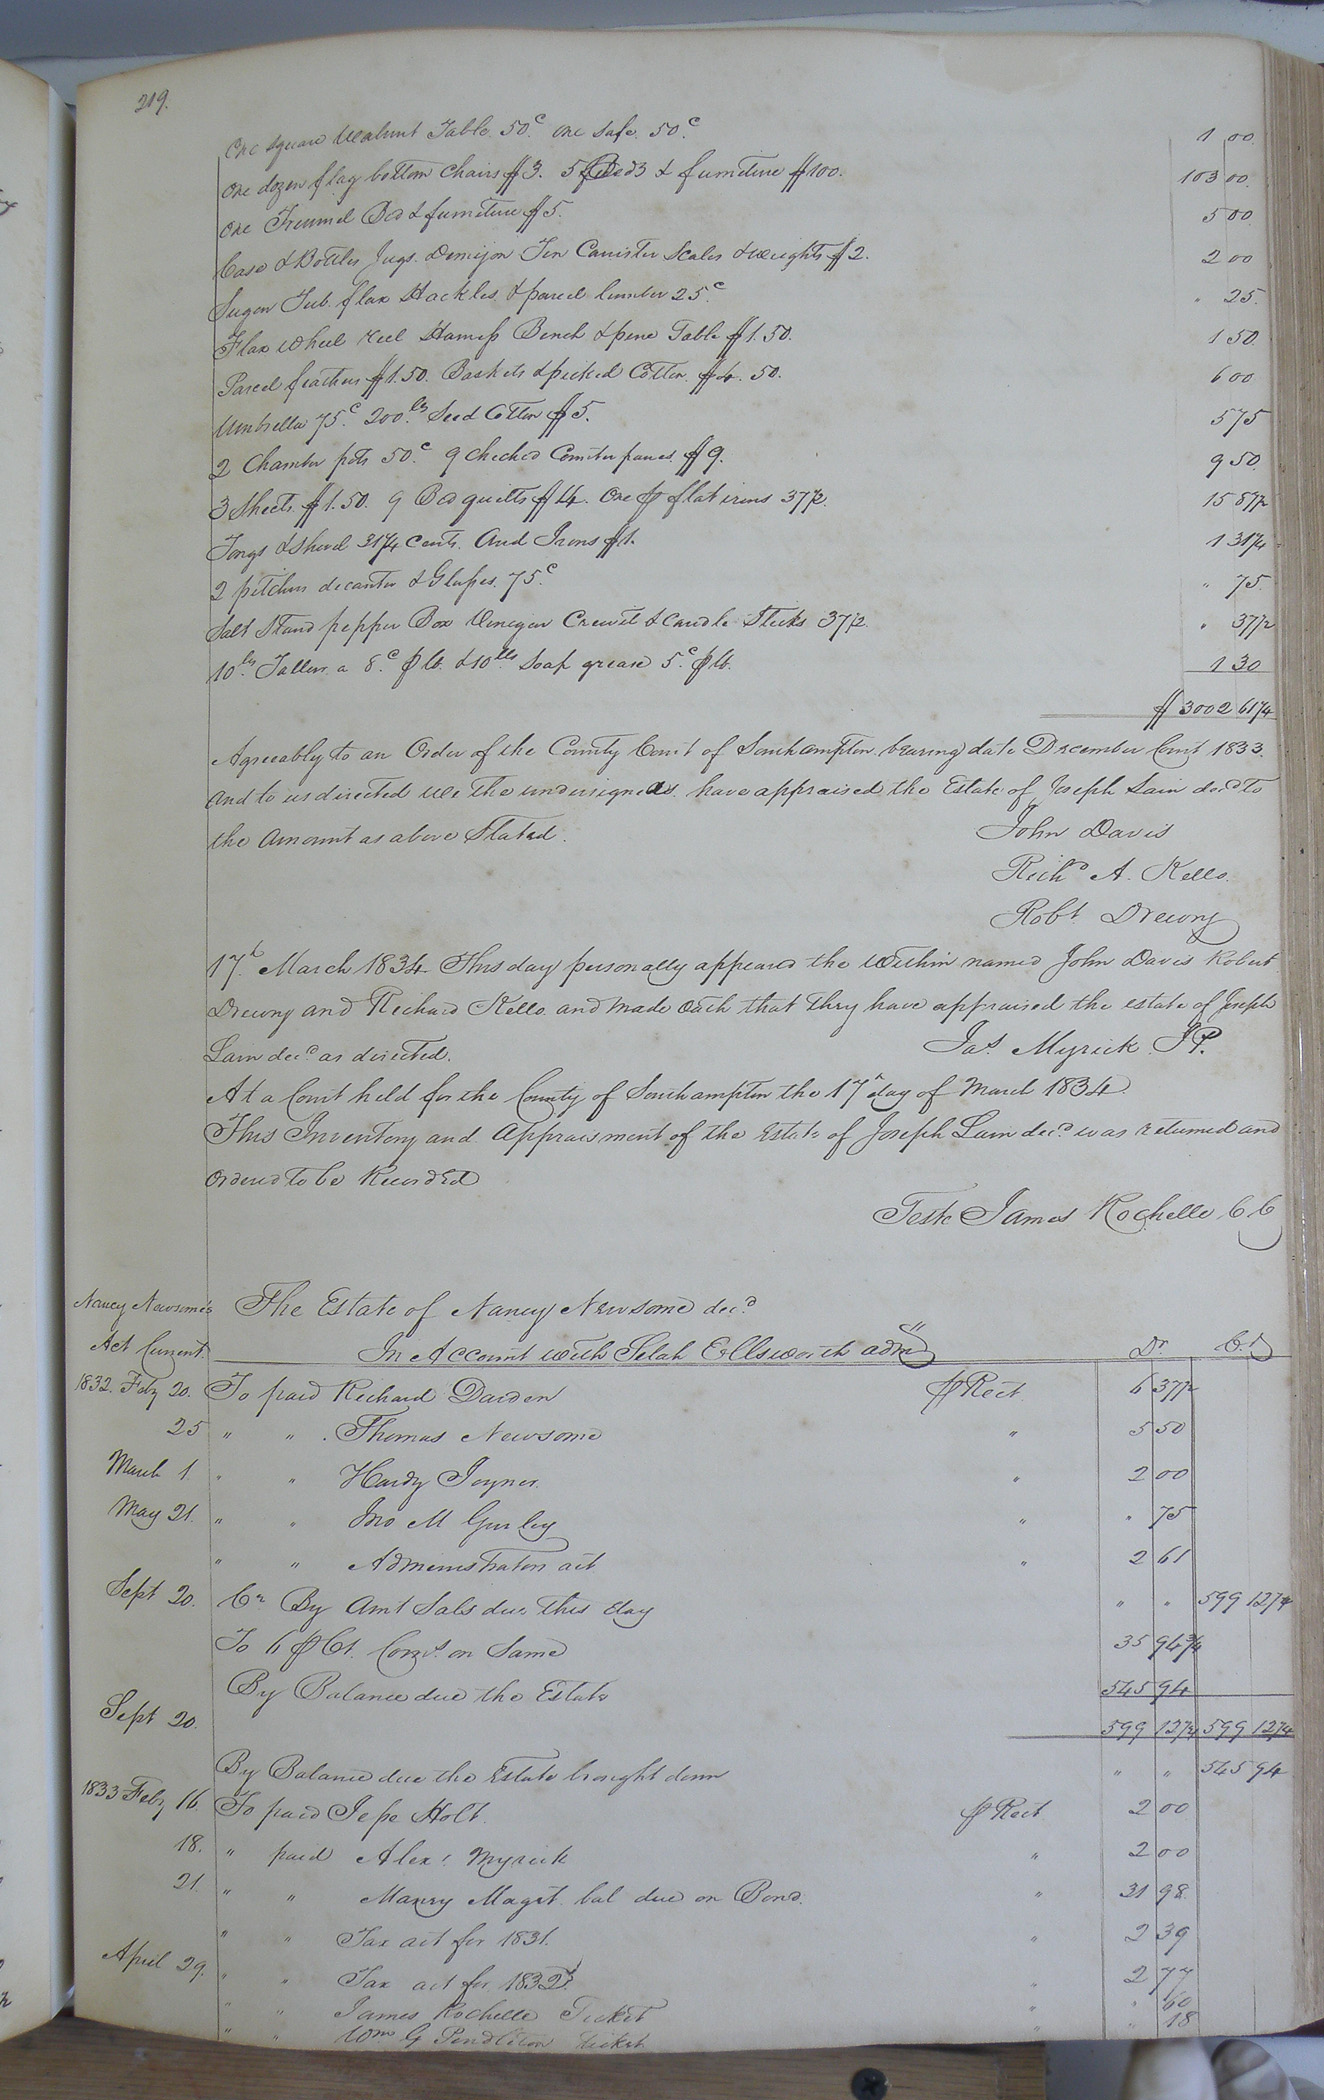 219.
One square Walnut Table. 50.c One Safe. 50.c 1 00
One dozen flag bottom Chairs $3. 5 Beds & furniture $100. 103 00.
One Trunnel Bed & furniture $5. 5 00
Case & Bottles Jugs. Demijon Tin Canister Scales & weights $2. 2 00
Sugar Tub. flax Hackles, & parcel lumber 25.c " 25.
Flax wheel reel Harness Bench & pine Table $1.50. 1 50.
Parcel feathers $1.50. Baskets & picked Cotten. $4.50. 6 00
Umbrella 75.c 200.lbs Seed Cotten $5. 5 75
2 Chamber pots 50.c 9 Checked Counterpanes $9. 9 50.
3 Sheets $1.50. 9 Bed quilts $14. One p flat irons 37½. 15 87½
Tongs & shovel 31¼ Cents. And Irons $1. 1 31¼
2 pitchers decanter & Glasses. 75.c " 75.
Salt Stand pepper Box Vinegar Crewit & Candle Sticks 37½. " 37½
10.lbs Tallow a 8.c p lb. & 10 lbs Soap grease 5.c p lb. 1 30
$ 3002 61¼
Agreeably to an Order of the County Court of Southampton bearing date December Court 1833.
And to us directed We the undersigneds have appraised the Estate of Joseph Lain decd to
the Amount as above Stated.
John Davis
Richd A. Kello.
Robt Drewry
17.th March 1834 This day personally appeared the Within named John Davis Robert
Drewry and Richard Kello. and made Oath that they have appraised the estate of Joseph
Lain decd as directed.
Jas. Myrick J P.
At a Court held for the County of Southampton the 17th day of March 1834.
This Inventory and Appraisment of the Estate of Joseph Lain decd was returned and
Ordered to be Recorded
Teste James Rochelle C C
Nancy Newsome's The Estate of Nancy Newsome decd
Act Current. In Account with Selah Ellsworth admr Dr Cr
1832. Feby 20. To paid Richard Darden p Rect 6 37½
25 " " Thomas Newsome " 5 50
March 1. " " Hardy Joyner. " 2 00
May 21. " " Jno M Gurley " " 75
" " Administrators act " 2 61
Sept 20. Cr By Amt Sales due this day " " 599 12¾
To 6 p Ct. Coms on Same 35 94¾
By Balance due the Estate 545 94
Sept 20. 599 12¾ 599 12¾
By Balance due the Estate brought down " " 545 94
1833 Feby 16. To paid Jesse Holt. p Rect 2 00
18. " paid Alexr Myrick " 2 00
21. " " Manry Magst. bal due on Bond. " 31 98
" " Tax act for 1831. " 2 39
April 29. " " Tax act for 1832. " 2 77
" " James Rochelle Ticket " " 60
" " Wm G Pendleton ticket " 18